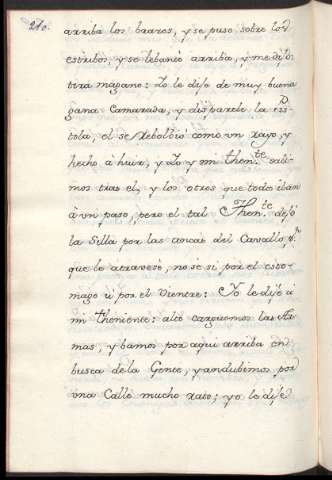 210.
arriba los baazos, y se puso sobre los
estribos, y se lebantó arriba, y me dijo
tira magano: Yo le dije de muy buena
gana Camarada, y disparele la Pis
tola, el se rebolbió como vn Rayo, y
hecho á huir, y Yo y mi then.te sali
mos tras el, y los otros que todo iban
á vn paso, pero el tal Then.te dejó
la Silla por las ancas del Cavallo, p.r
que le atravesè, no sè si por el esto-
mago ù por el Vientre: Yo le dije á
mi theniente: alto carguemos las Ar
mas, y bamos por aqui arriba en
busca de la Gente, y andubimos por
vna Calle mucho rato; y o le dije